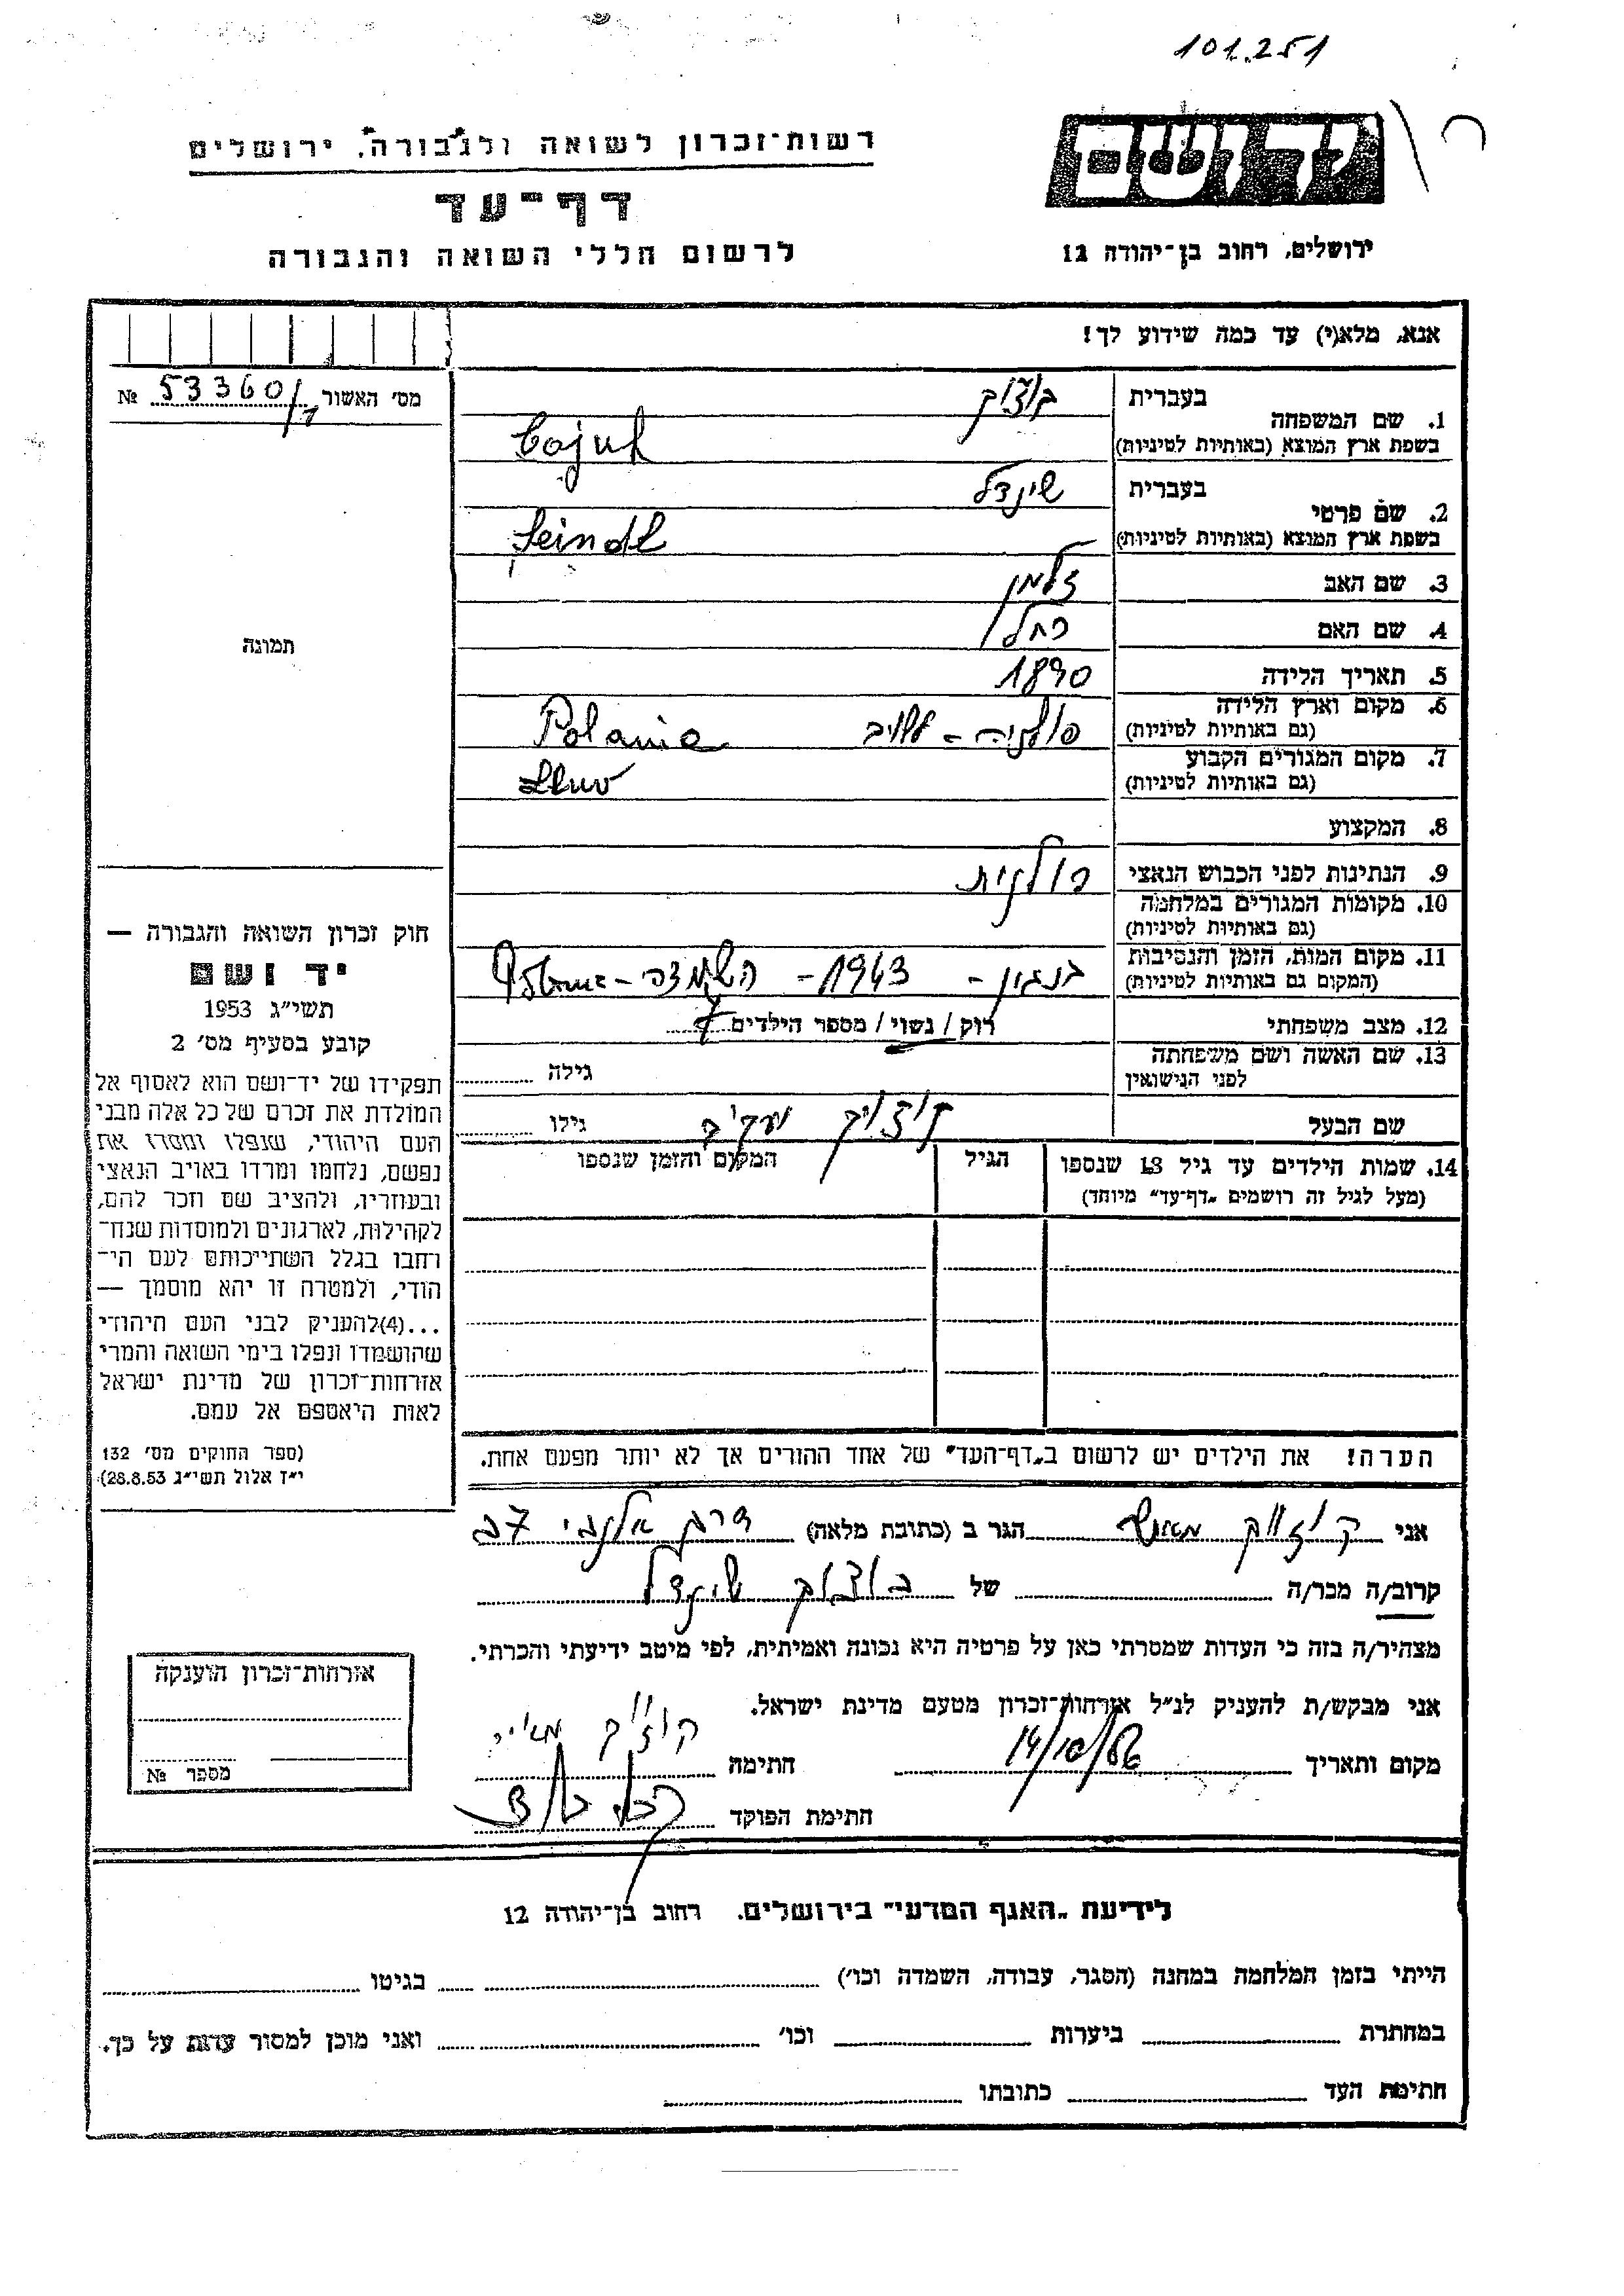 101.251
רשות־זכרון לשואה ולגבורה, ירושלים
יד ושם
דף־עד
לרשום חללי השואה והגבורה
ירושלים, רחוב בן־יהודה 12
אנא, מלא(י) עד כמה שידוע לך!
מס׳ האשור № 53360/
1. שם המשפחה
בעברית
בשפת ארץ המוצא (באותיות לטיניות)
2. שם פרטי
בעברית שינדל
בשפת ארץ המוצא (באותיות לטיניות) Seindl
3. שם האב זלמן
4. שם האם רחל
5. תאריך הלידה 1890
6. מקום וארץ הלידה פולניה -
(גם באותיות לטיניות) Polania
7. מקום המגורים הקבוע
(גם באותיות לטיניות)
8. המקצוע
9. הנתינות לפני הכבוש הנאצי פולנית
10. מקומות המגורים במלחמה
(גם באותיות לטיניות)
11. מקום המות, הזמן והנסיבות - 1943 - השמדה -
(המקום גם באותיות לטיניות)
12. מצב משפחתי רוק / נשוי / מספר הילדים 7
13. שם האשה ושם משפחתה
לפני הנישואין גילה
שם הבעל יעקב גילו
14. שמות הילדים עד גיל 13 שנספו
(מעל לגיל זה רושמים „דף־עד״ מיוחד)
הגיל
המקום והזמן שנספו
הערה! את הילדים יש לרשום ב„דף־העד״ של אחד ההורים אך לא יותר מפעם אחת.
תמונה
חוק זכרון השואה והגבורה —
יד ושם
תשי״ג 1953
קובע בסעיף מס׳ 2
תפקידו של יד־ושם הוא לאסוף אל
המולדת את זכרם של כל אלה מבני
העם היהודי, שנפלו ומסרו את
נפשם, נלחמו ומרדו באויב הנאצי
ובעוזריו, ולהציב שם וזכר להם,
לקהילות, לארגונים ולמוסדות שנח־
רבו בגלל השתייכותם לעם הי־
הודי, ולמטרה זו יהא מוסמך —
...(4)להעניק לבני העם היהודי
שהושמדו ונפלו בימי השואה והמרי
אזרחות־זכרון של מדינת ישראל
לאות היאספם אל עמם.
(ספר החוקים מס׳ 132
י״ז אלול תשי״ג 28.8.53)
אני הגר ב (כתובת מלאה) דרך אלנבי 37
קרוב/ה מכר/ה של שינדל
מצהיר/ה בזה כי העדות שמסרתי כאן על פרטיה היא נכונה ואמיתית, לפי מיטב ידיעתי והכרתי.
אני מבקש/ת להעניק לנ״ל אזרחות־זכרון מטעם מדינת ישראל.
מקום ותאריך 14/10/56 חתימה
חתימת הפוקד
אזרחות־זכרון הוענקה
מספר №
לידיעת „האגף המדעי״ בירושלים. רחוב בן־יהודה 12
הייתי בזמן המלחמה במחנה (הסגר, עבודה, השמדה וכו׳) בגיטו
במחתרת ביערות וכו׳ ואני מוכן למסור עדות על כך.
חתימת העד כתובתו